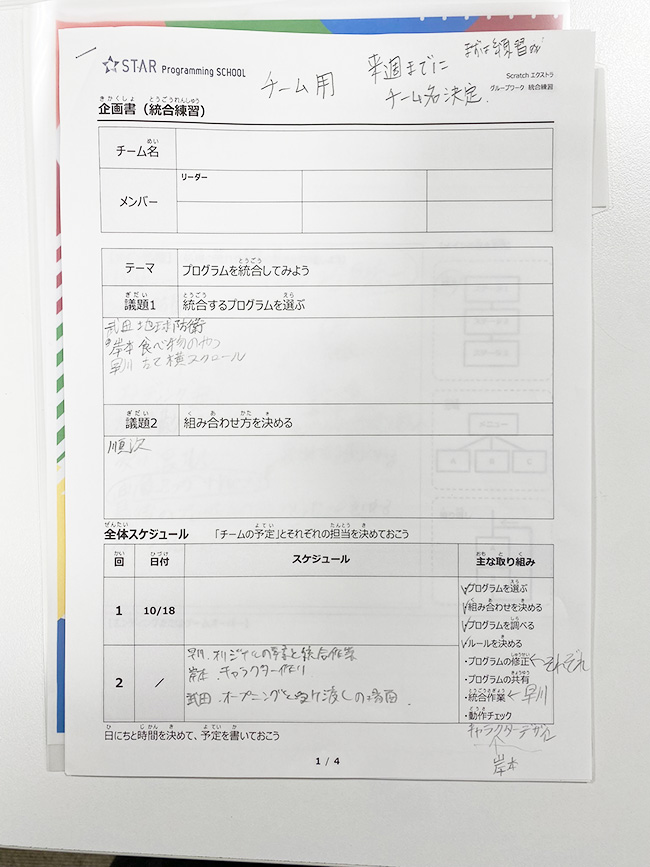 STAR Programming SCHOOL
チーム用
来週までに
チーム名決定.
まずは練習が
Scratch エクストラ
グループワーク 統合練習
企画書（統合練習）
チーム名
メンバー
リーダー
テーマ プログラムを統合してみよう
議題1 統合するプログラムを選ぶ
武田 地球防衛
岸本 食べ物のやつ
早川 たて横スクロール
議題2 組み合わせ方を決める
順次
全体スケジュール 「チームの予定」とそれぞれの担当を決めておこう
回 日付 スケジュール 主な取り組み
1 10/18
✓プログラムを選ぶ
✓組み合わせを決める
✓プログラムを調べる
✓ルールを決める
2 /
早川.オリジナルの と統合作業
岸本.キャラクター作り
武田.オープニングと受け渡しの場面.
・プログラムの修正←それぞれ
・プログラムの共有
・統合作業←早川
・動作チェック
キャラクターデザイン
岸本
日にちと時間を決めて、予定を書いておこう
1 / 4